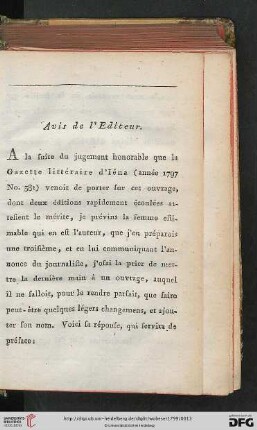 Avis de l'Editeur.
A la suite du jugement honorable que la
Gazette littéraire d'Iéna (année 1797
No. 381) venoit de porter sur cet ouvrage,
dont deux éditions rapidement écoulées at-
testent le mérite, je prévins la femme esti-
mable qui en est l'auteur, que j'en préparois
une troisième, et en lui communiquant l'an-
nonce du journaliste, j'osai la prier de met-
tre la dernière main à un ouvrage, auquel
il ne falloit, pour le rendre parfait, que faire
peut-être quelques légers changemens, et ajou-
ter son nom. Voici sa réponse, qui servira de
préface:
UNIVERSITÄTS-
BIBLIOTHEK
HEIDELBERG
© Universitätsbibliothek Heidelberg
gefördert durch die
DFG